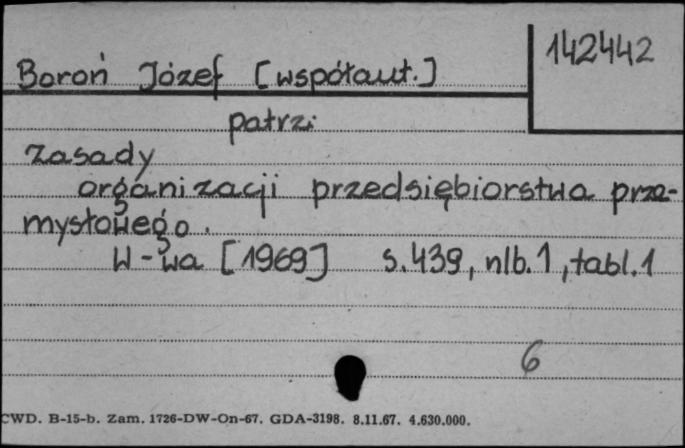 142442
Boroń Józef [współaut.]
patrz:
Zasady
organizacji przedsiębiorstwa prze-
mysłowego.
W-wa [1969] s. 439, nlb. 1, tabl. 1
6
CWD. B-15-b. Zam. 1726-DW-On-67. GDA-3198. 8.11.67. 4.630.000.